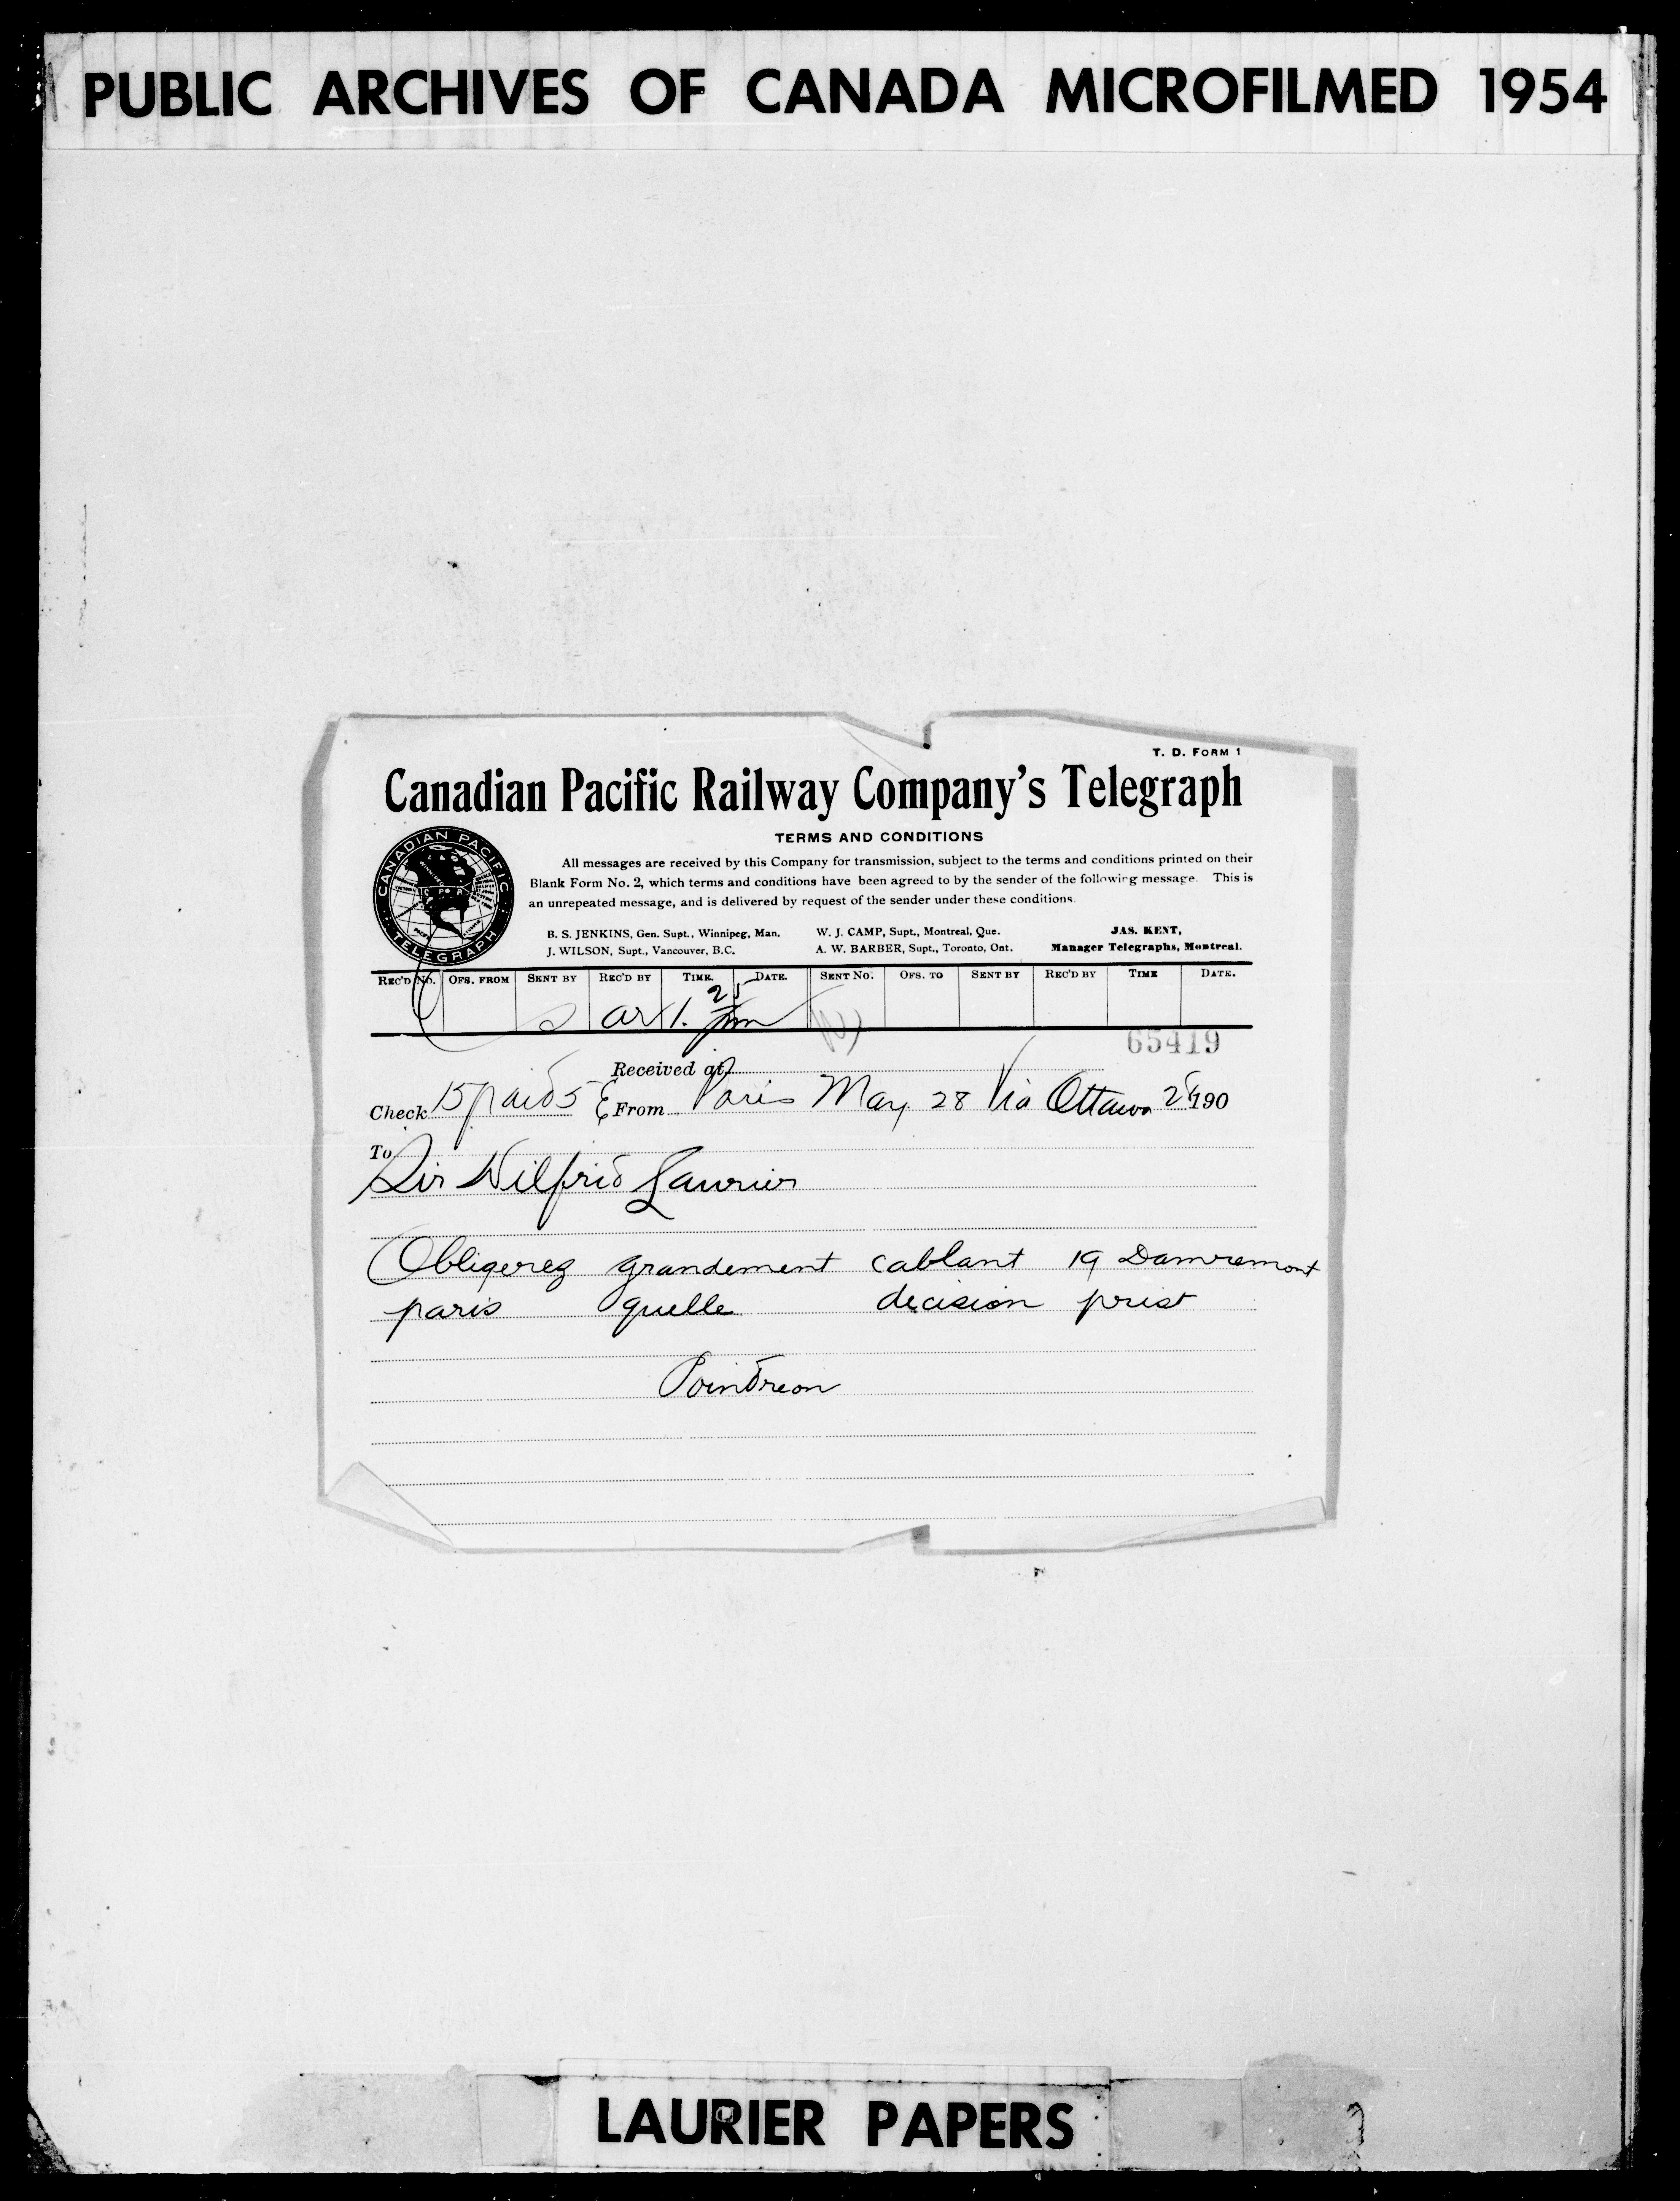 PUBLIC ARCHIVES OF CANADA MICROFILMED 1954
T. D. FORM 1
Canadian Pacific Railway Company's Telegraph
CANADIAN PACIFIC
TELEGRAPH
TERMS AND CONDITIONS
All messages are received by this Company for transmission, subject to the terms and conditions printed on their
Blank Form No. 2, which terms and conditions have been agreed to by the sender of the following message. This is
an unrepeated message, and is delivered by request of the sender under these conditions.
B. S. JENKINS, Gen. Supt., Winnipeg, Man. W. J. CAMP, Supt., Montreal, Que. JAS. KENT,
J. WILSON, Supt., Vancouver, B.C. A. W. BARBER, Supt., Toronto, Ont. Manager Telegraphs, Montreal.
REC'D NO. OFS. FROM SENT BY REC'D BY TIME. DATE. SENT NO. OFS. TO SENT BY REC'D BY TIME DATE.
1.25 pm
65419
Received at
Check 15 paid 5 From Paris May 28 Via Ottawa 190
To
Sir Wilfrid Laurier
Obligerez grandement cablant 19 Damremont
paris quelle decision prist
Pointreon
LAURIER PAPERS